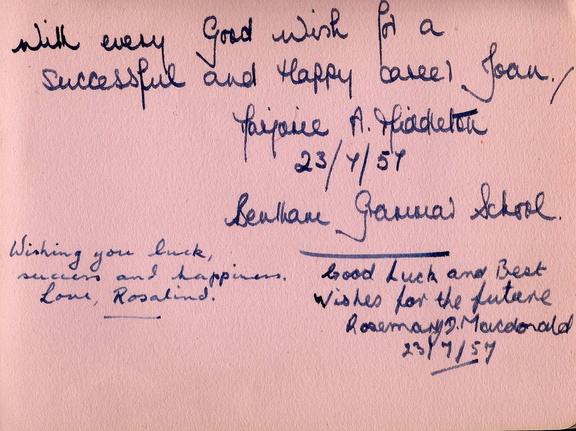 With every Good Wish for a
Successful and Happy career Joan.
Marjorie A. Middleton
23/7/57
Bentham Grammar School.
Wishing you luck,
success and happiness.
Love, Rosalind.
Good Luck and Best
Wishes for the future
Rosemary D. Macdonald
23/7/57